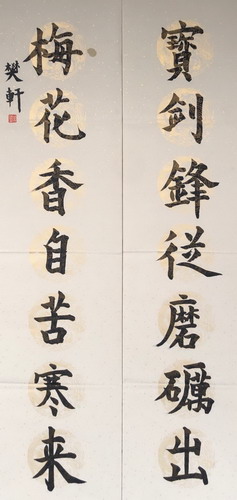 寶劍鋒從磨礪出
梅花香自苦寒来
樊軒